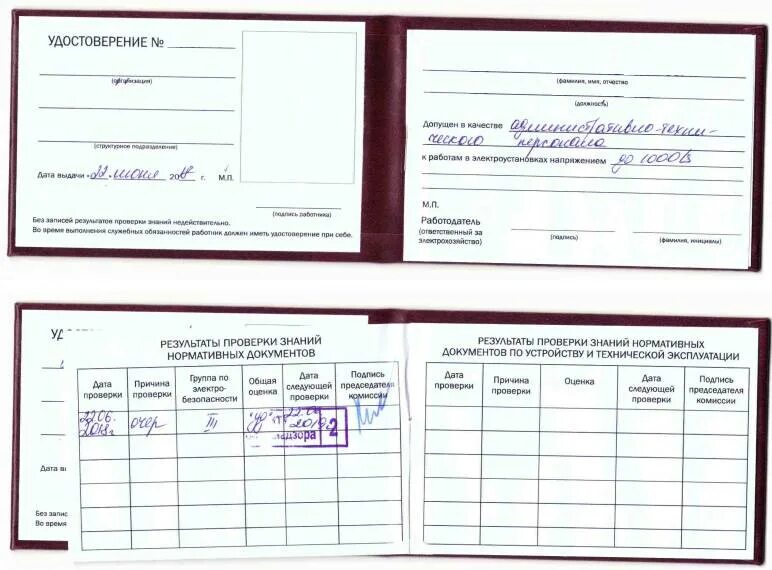 УДОСТОВЕРЕНИЕ №
(организация)
(структурное подразделение)
Дата выдачи «22 июня 2018 г. М.П.
(подпись работника)
Без записей результатов проверки знаний недействительно.
Во время выполнения служебных обязанностей работник должен иметь удостоверение при себе.
(фамилия, имя, отчество
(должность)
Допущен в качестве административно-техни-
ческого персонала
к работам в электроустановках напряжением до 1000В
М.П.
Работодатель
(ответственный за
электрохозяйство)
(подпись)
(фамилия, инициалы)
УД
Дата вы
Без запис
Во время
РЕЗУЛЬТАТЫ ПРОВЕРКИ ЗНАНИЙ
НОРМАТИВНЫХ ДОКУМЕНТОВ
Дата проверки
Причина проверки
Группа по электро-безопасности
Общая оценка
Дата следующей проверки
Подпись председателя комиссии
22.06.
2018г
очер
III
22.06
2019г.
надзора 2
РЕЗУЛЬТАТЫ ПРОВЕРКИ ЗНАНИЙ НОРМАТИВНЫХ
ДОКУМЕНТОВ ПО УСТРОЙСТВУ И ТЕХНИЧЕСКОЙ ЭКСПЛУАТАЦИИ
Дата проверки
Причина проверки
Оценка
Дата следующей проверки
Подпись председателя комиссии